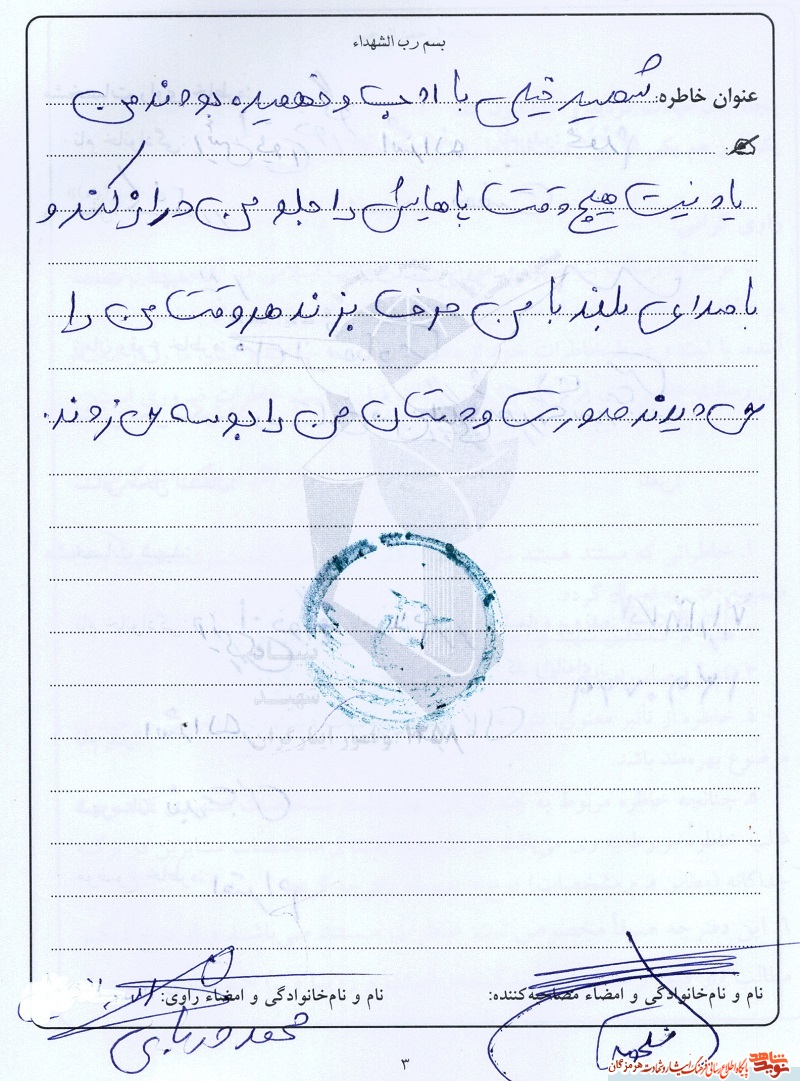 بسم رب الشهداء
عنوان خاطره: شهید خیلی با ادب و فهمیده بودند من
یاد نیست هیچ وقت پاهایش را جلو من دراز کند و
با صدای بلند با من حرف بزند هر وقت من را
می دیدند صورت و دستان من را بوسه می زدند.
نام و نام‌خانوادگی و امضاء مصاحبه‌کننده:
نام و نام‌خانوادگی و امضاء راوی:
محمد
۳
نوید شاهد
پایگاه اطلاع رسانی فرهنگ ایثار و شهادت هرمزگان